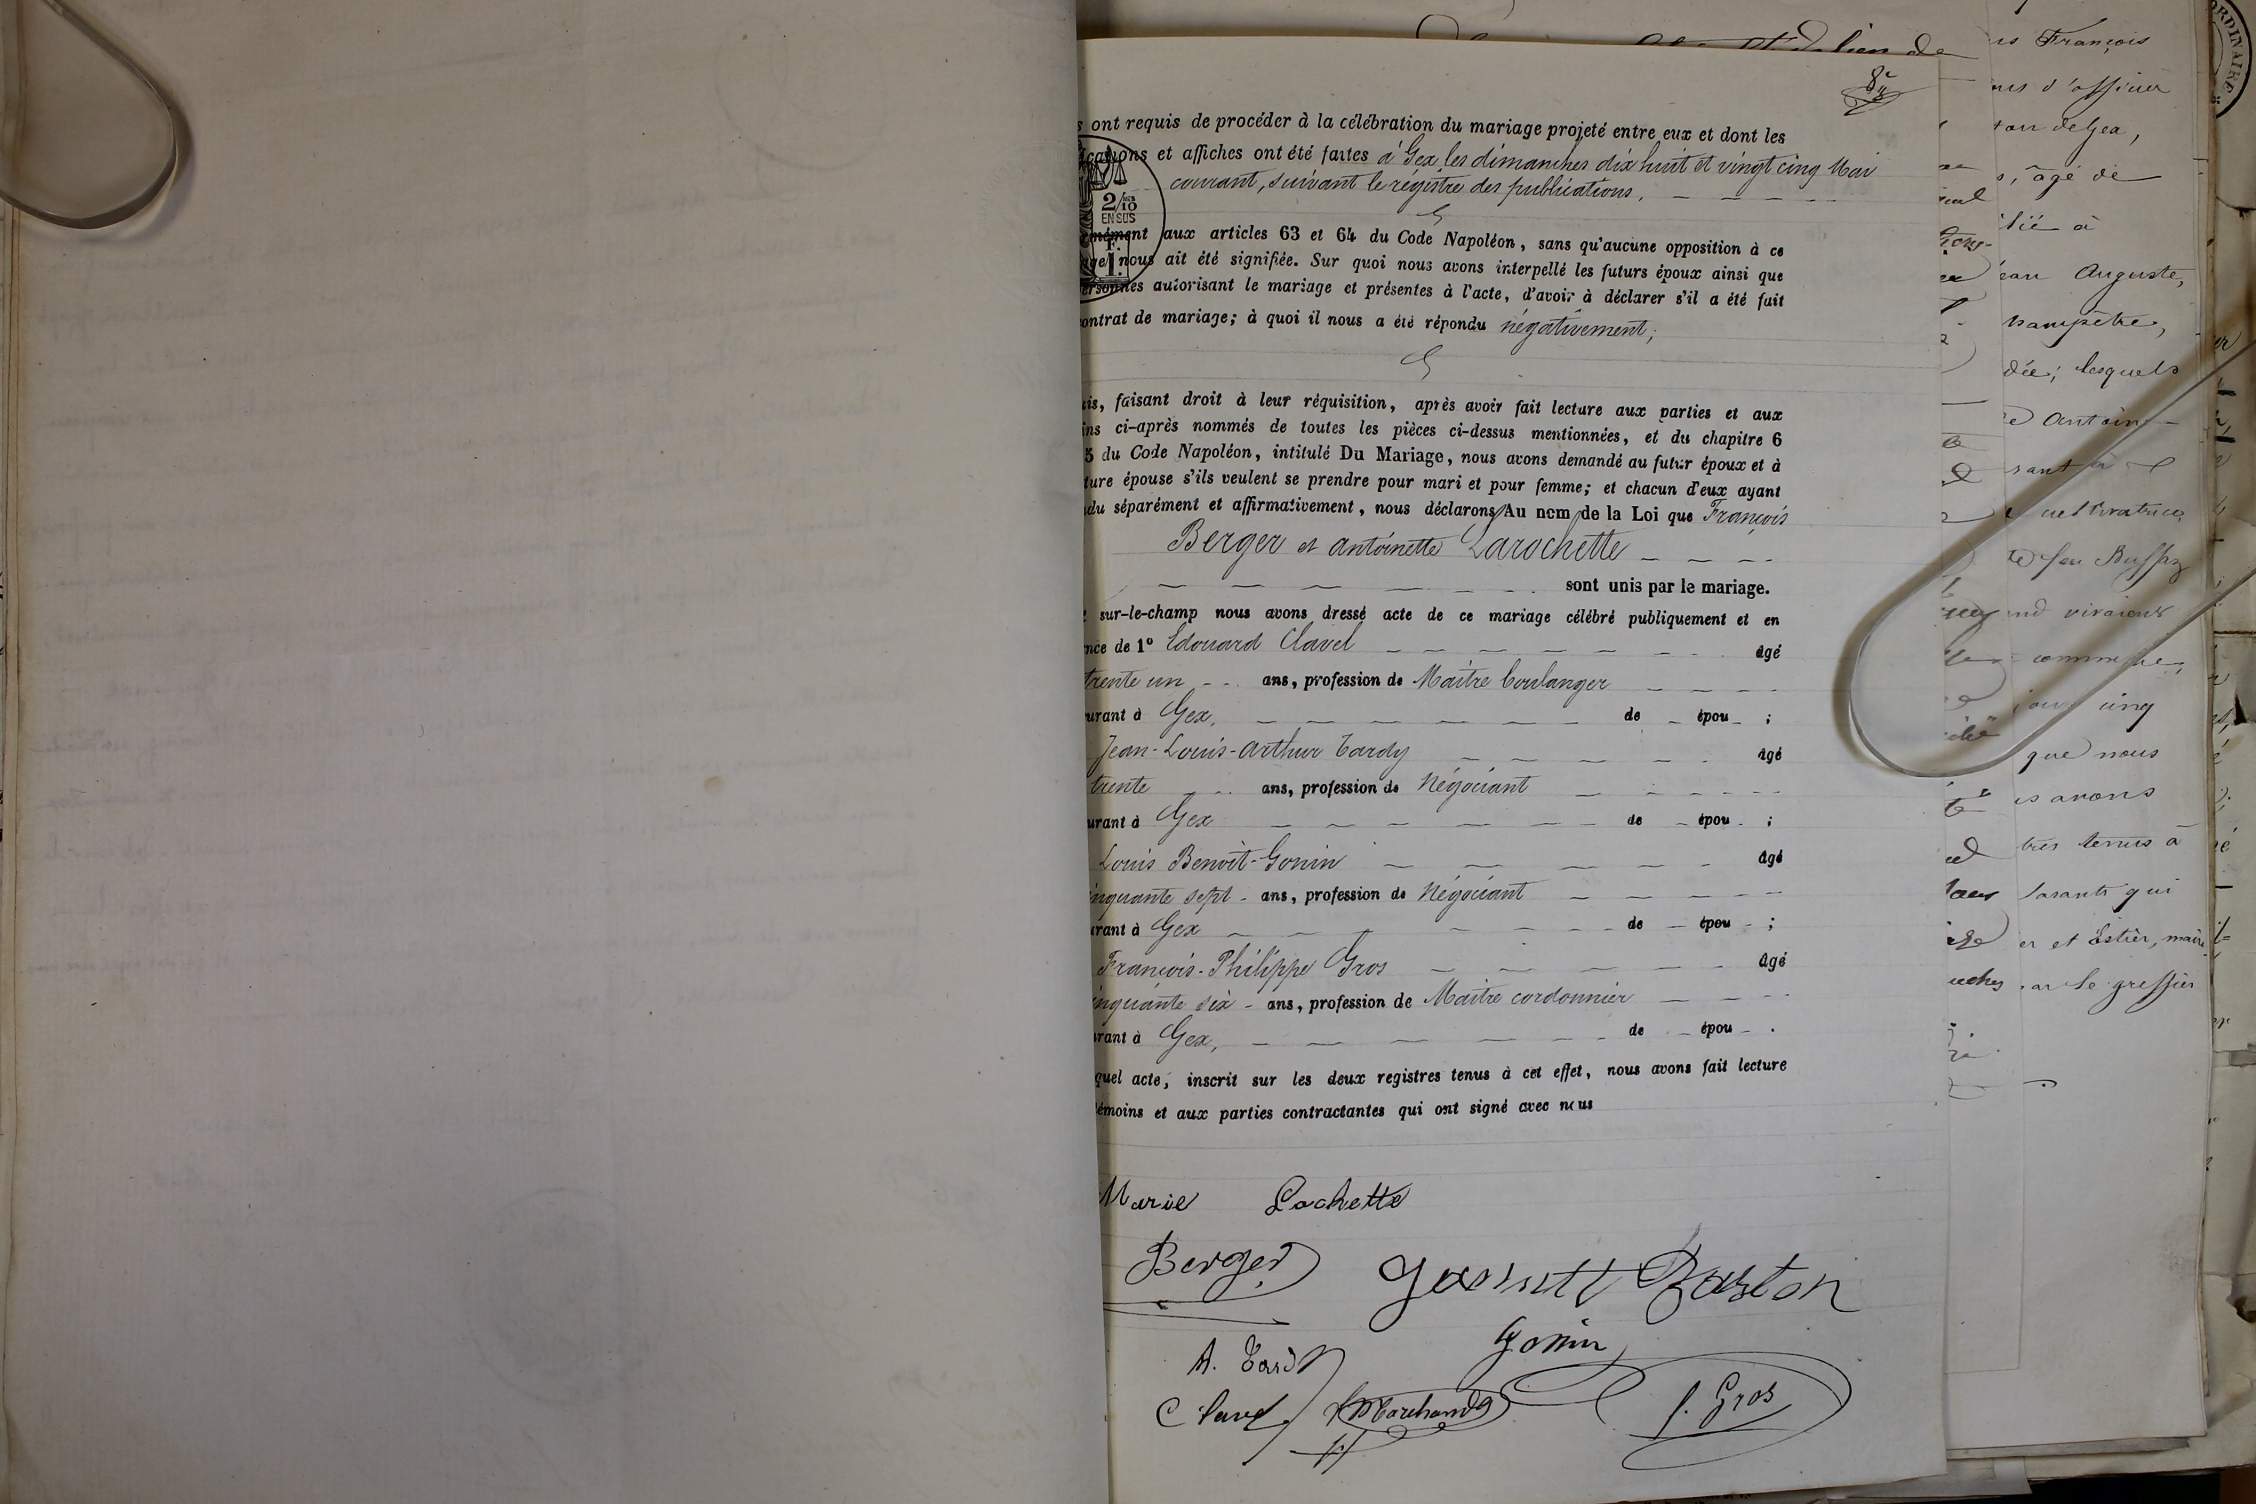 s ont requis de procéder à la célébration du mariage projeté entre eux et dont les
ications et affiches ont été faites à Gex les dimanches dix huit et vingt cinq Mai
courant, suivant le régistre des publications.
2/10
EN SUS
mément aux articles 63 et 64 du Code Napoléon, sans qu'aucune opposition à ce
age nous ait été signifiée. Sur quoi nous avons interpellé les futurs époux ainsi que
ersonnes autorisant le mariage et présentes à l'acte, d'avoir à déclarer s'il a été fait
ontrat de mariage; à quoi il nous a été répondu négativement;
uis, faisant droit à leur réquisition, après avoir fait lecture aux parties et aux
ins ci-après nommés de toutes les pièces ci-dessus mentionnées, et du chapitre 6
5 du Code Napoléon, intitulé Du Mariage, nous avons demandé au futur époux et à
ture épouse s'ils veulent se prendre pour mari et pour femme; et chacun d'eux ayant
ndu séparément et affirmativement, nous déclarons Au nom de la Loi que François
Berger et Antoinette Larochette
sont unis par le mariage.
sur-le-champ nous avons dressé acte de ce mariage célébré publiquement et en
nce de 1º Edouard Clavel âgé
trente un ans, profession de Maître boulanger
urant à Gex, de épou ;
Jean-Louis-Arthur Tardy âgé
trente ans, profession de Négociant
urant à Gex de épou ;
Louis Benoît-Gonin âgé
inquante sept ans, profession de Négociant
urant à Gex de épou ;
François-Philippe Gros âgé
inquante six ans, profession de Maître cordonnier
urant à Gex, de épou .
quel acte, inscrit sur les deux registres tenus à cet effet, nous avons fait lecture
témoins et aux parties contractantes qui ont signé avec nous
Marie Lochette
Berger
Gonin
A. Tardy
Clavel Marchand f. Gros
ORDINAIRE
François
d'officier
ton de Gex,
, âgé de
ean Auguste,
hampêtre,
dée; lesquels
Antoine
cultivatrice
cinq
que nous
is avons
tres tenus à
posants qui
er et Estier, maire
ar le greffier